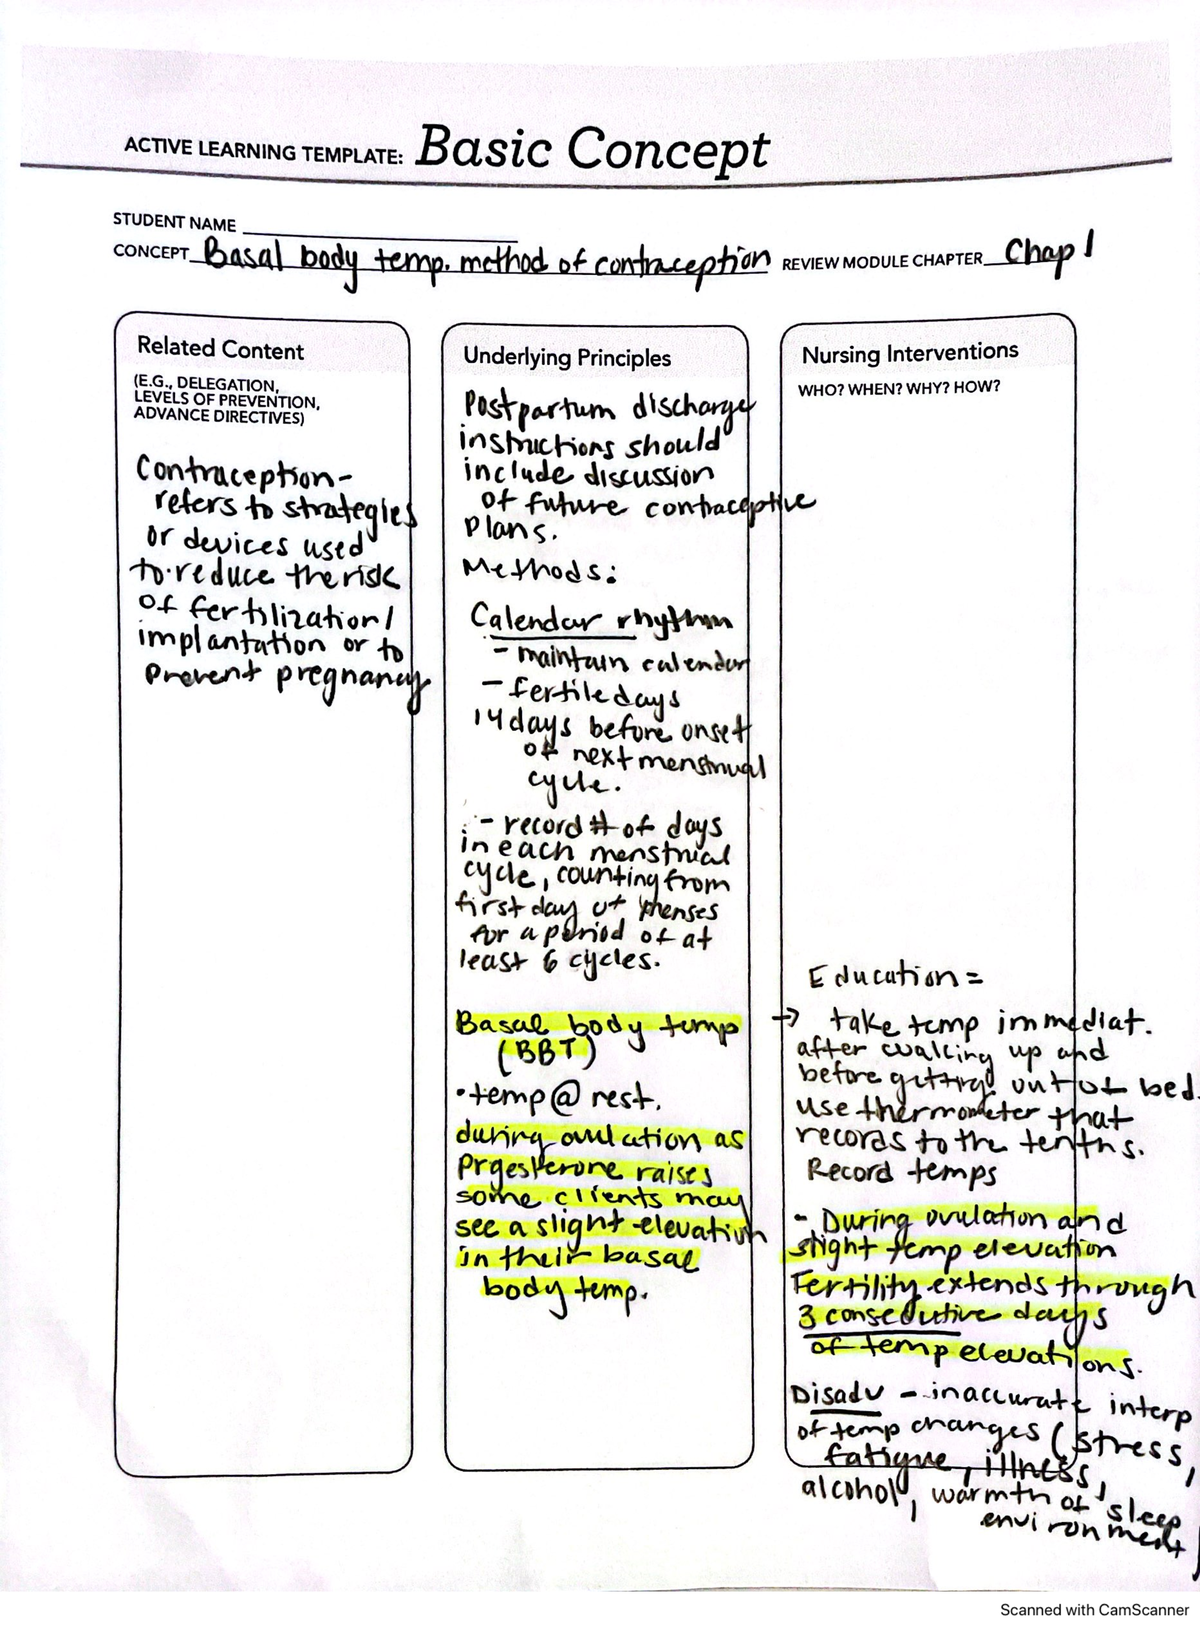 ACTIVE LEARNING TEMPLATE: Basic Concept
STUDENT NAME
CONCEPT Basal body temp. method of contraception REVIEW MODULE CHAPTER Chap 1
Related Content
(E.G., DELEGATION,
LEVELS OF PREVENTION,
ADVANCE DIRECTIVES)
Contraception-
refers to strategies
or devices used
to reduce the risk
of fertilization/
implantation or to
prevent pregnancy
Underlying Principles
Postpartum discharge
instructions should
include discussion
of future contraceptive
plans.
Methods:
Calendar rhythm
- maintain calendar
- fertile days
14 days before onset
of next menstrual
cycle.
- record # of days
in each menstrual
cycle, counting from
first day of menses
for a period of at
least 6 cycles.
Basal body temp
(BBT)
• temp @ rest.
during ovulation as
Prgesterone raises
some clients may
see a slight elevation
in their basal
body temp.
Nursing Interventions
WHO? WHEN? WHY? HOW?
Education =
→ take temp immediat.
after walking up and
before getting out of bed.
use thermometer that
records to the tenths.
Record temps
- During ovulation and
slight temp elevation
Fertility extends through
3 consecutive days
of temp elevations.
Disadv - inaccurate interp
of temp changes (stress,
fatigue, illness,
alcohol, warmth of sleep
environment
Scanned with CamScanner